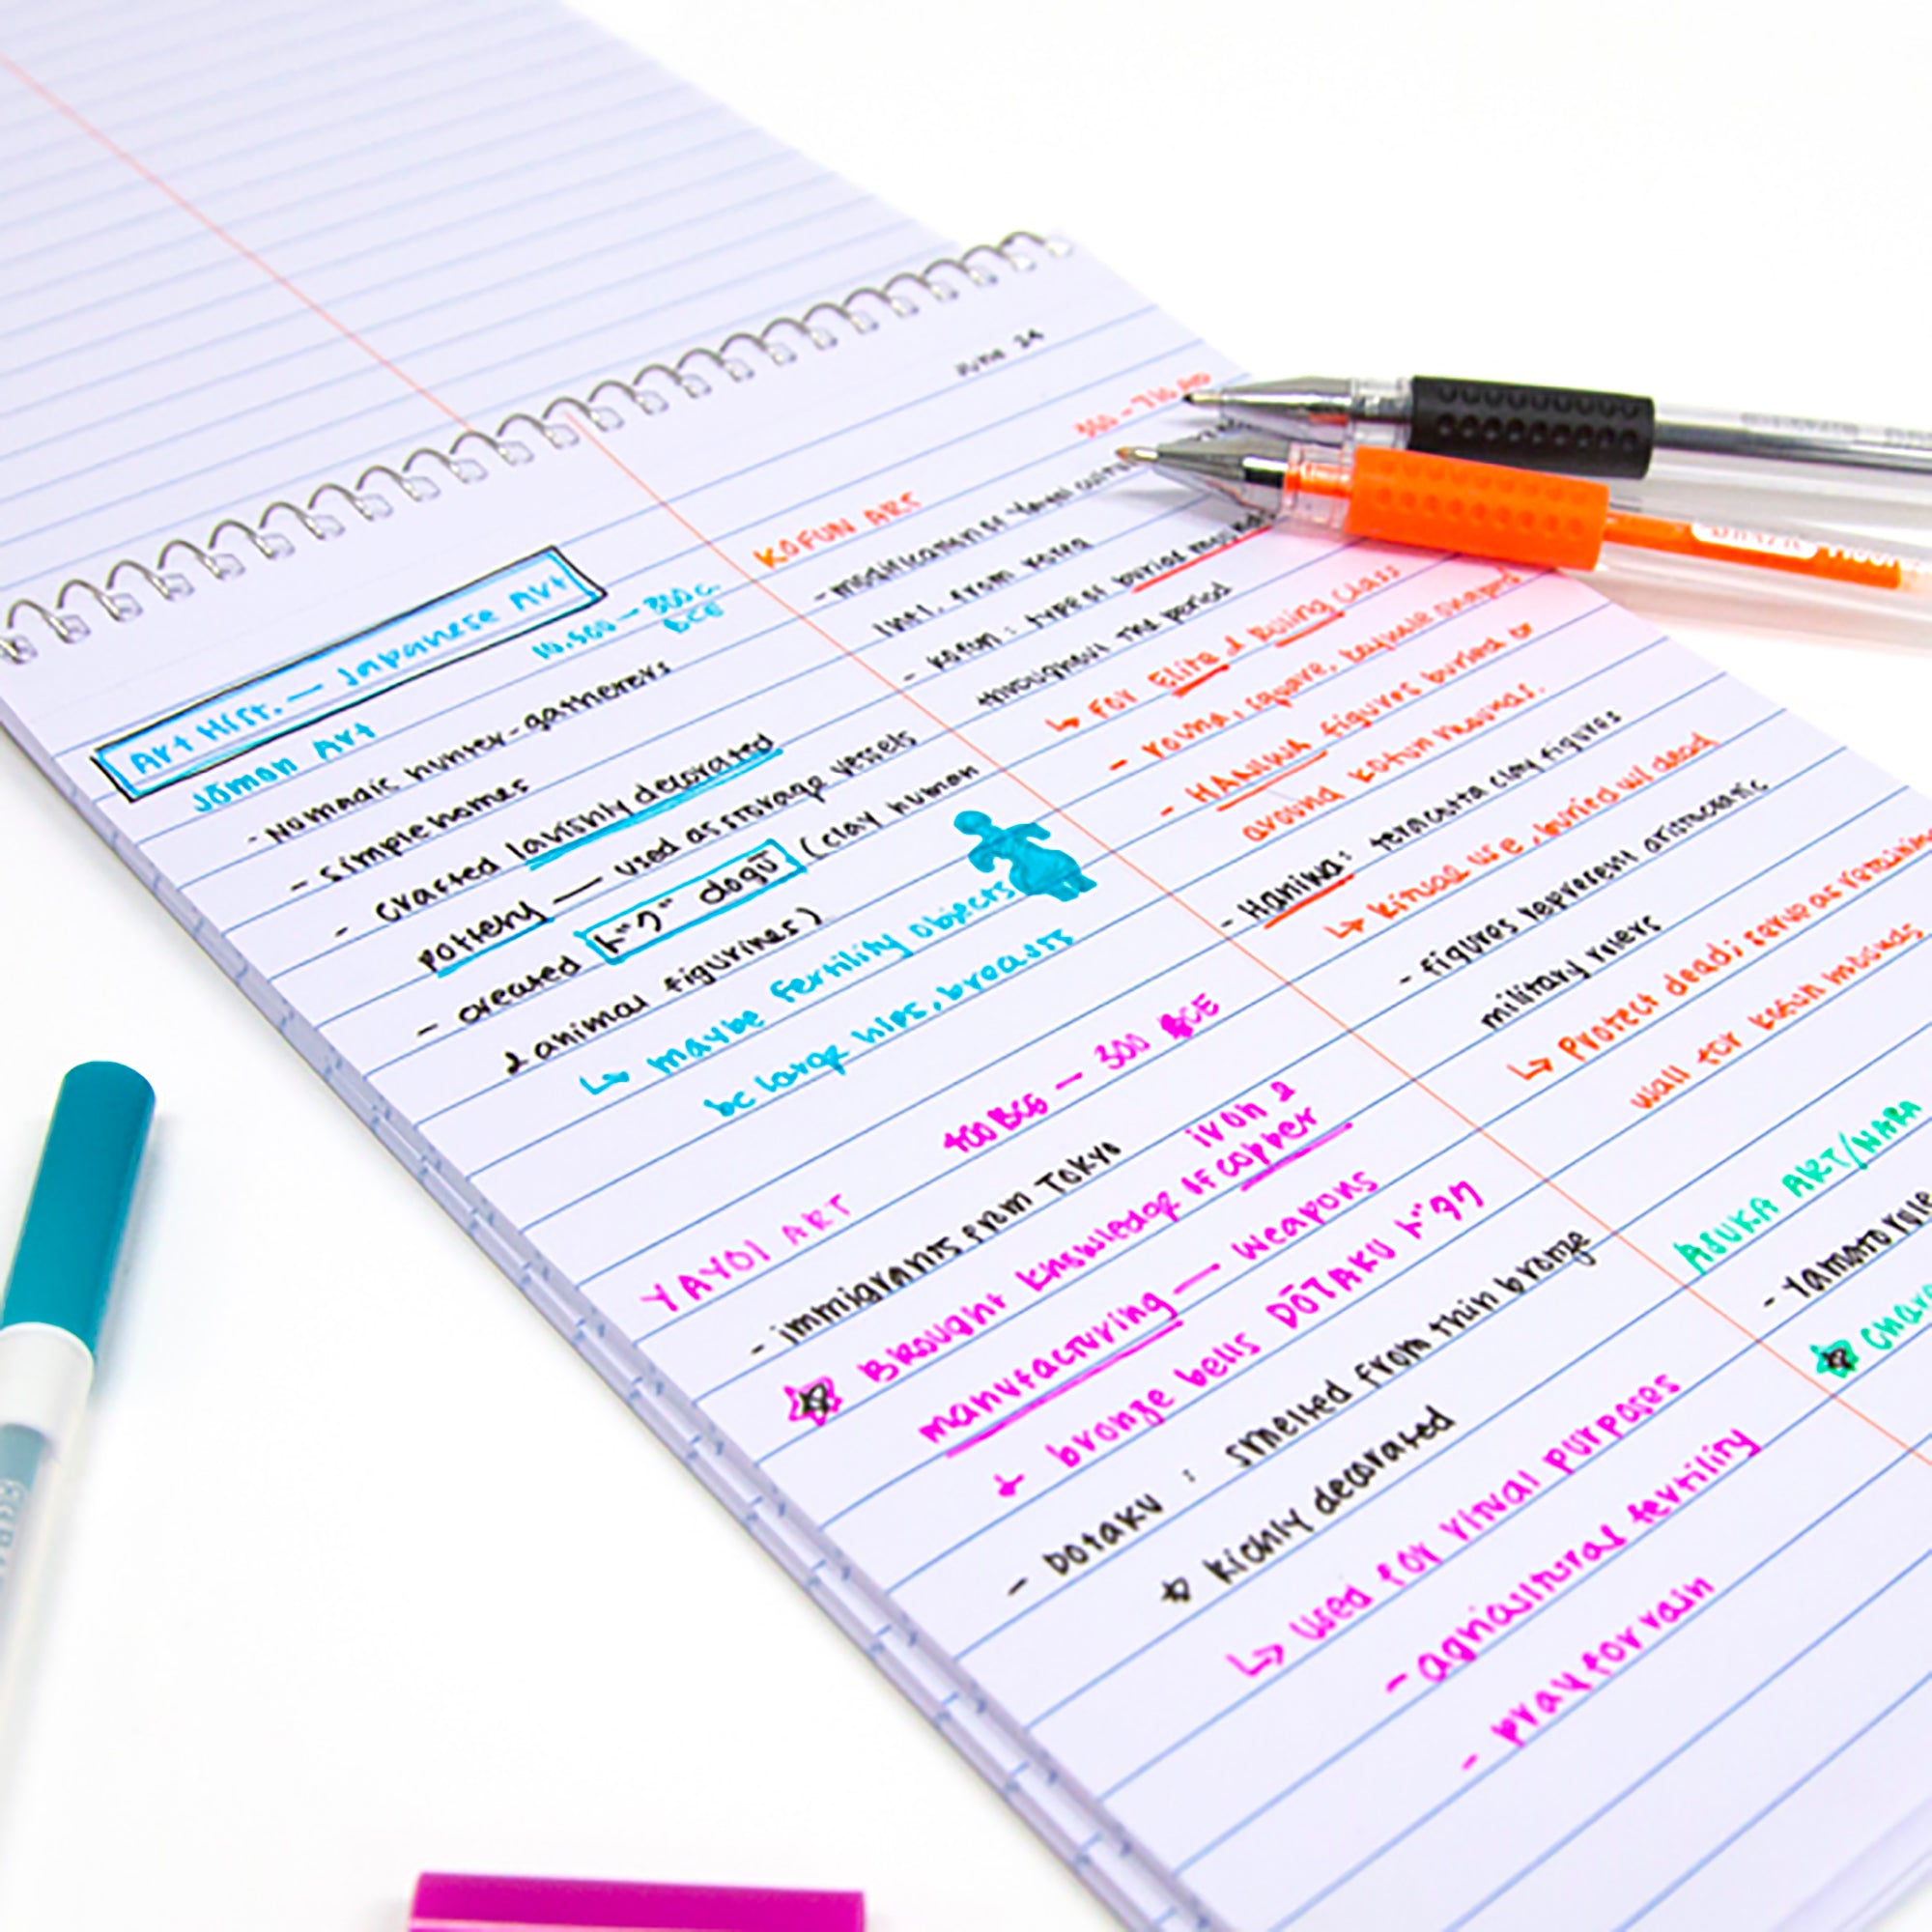 Art Hist. — Japanese Art
Jōmon Art 10,500 — 300 c. BCE
- Nomadic hunter-gatherers
- Simple homes
- crafted lavishly decorated
pottery — used as storage vessels
- created ド"グ" dogū (clay human
& animal figurines)
↳ maybe fertility objects
bc large hips, breasts
YAYOI ART 400 BCE — 300 BCE
- immigrants from Tokyo
iron &
☆ Brought knowledge of copper
manufacturing — weapons
+ bronze bells DŌTAKU
- Dotaku : smelted from thin bronze
☆ Richly decorated
↳ used for ritual purposes
- agricultural fertility
- pray for rain
June 24
KOFUN ART 300 - 710 AD
- modification of Yayoi
Intl. from
- kofun : type of burial
throughout the period
↳ For Elite & Ruling class
- round, square, keyhole shaped
- HANIWA figures buried or
around kofun mounds.
- Haniwa: terracotta clay figures
↳ Ritual use, buried w/ dead
- figures represent aristocratic
military rulers
↳ Protect dead; serve as retaining
wall for kofun mounds
ASUKA ART/NARA
- Yamato rule
☆